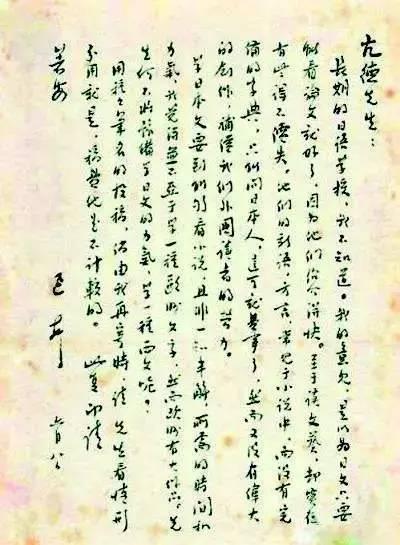 亢德先生：
長期的日語學校，我不知道。我的意見，是以為日文只要
能看論文就好了，因為他們紹介得快。至于讀文藝，却實在
有些得不償失。他們的新語，方言，常見于小說中，而沒有完
備的字典，只能問日本人，這可就費事了，然而又沒有偉大
的創作，補償我們外國讀者的勞力。
學日本文要到能夠看小說，且非一知半解，所需的時間和
力氣，我覺得並不亞于學一種歐洲文字，然而歐洲有大作品。先
生何不將豫備學日文的力氣，學一種西文呢？
用種種筆名的投稿，倘由我再寄時，請 先生看情形
分用就是，稿費他是不計較的。 此复即請
著安
迅 上 六月八日